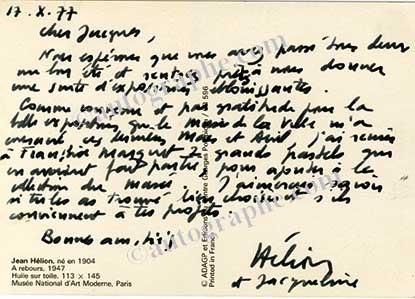 17. X. 77
Cher Jacques,
Nous espérons que vous avez passé tous deux
un bon été et rentrez prêt à nous donner
une suite d'expositions éblouissantes.
Comme convenu et par gratitude pour la
belle exposition que le musée de la ville m'a
consacré ces derniers Mars et Avril, j'ai remis
à 2 grands pastels qui
en avaient fait parties, pour ajouter à la
collection du musée. J'aimerais savoir
si tu les as trouvé bien choisis et s'ils
conviennent à tes projets.
Bonne amitié
Hélion
et Jacqueline
Jean Hélion, né en 1904
A rebours, 1947
Huile sur toile. 113 × 145
Musée National d'Art Moderne, Paris
© ADAGP et Editions du Centre Georges Pompidou 596
Printed in France
©autographe.com
©autographe.com